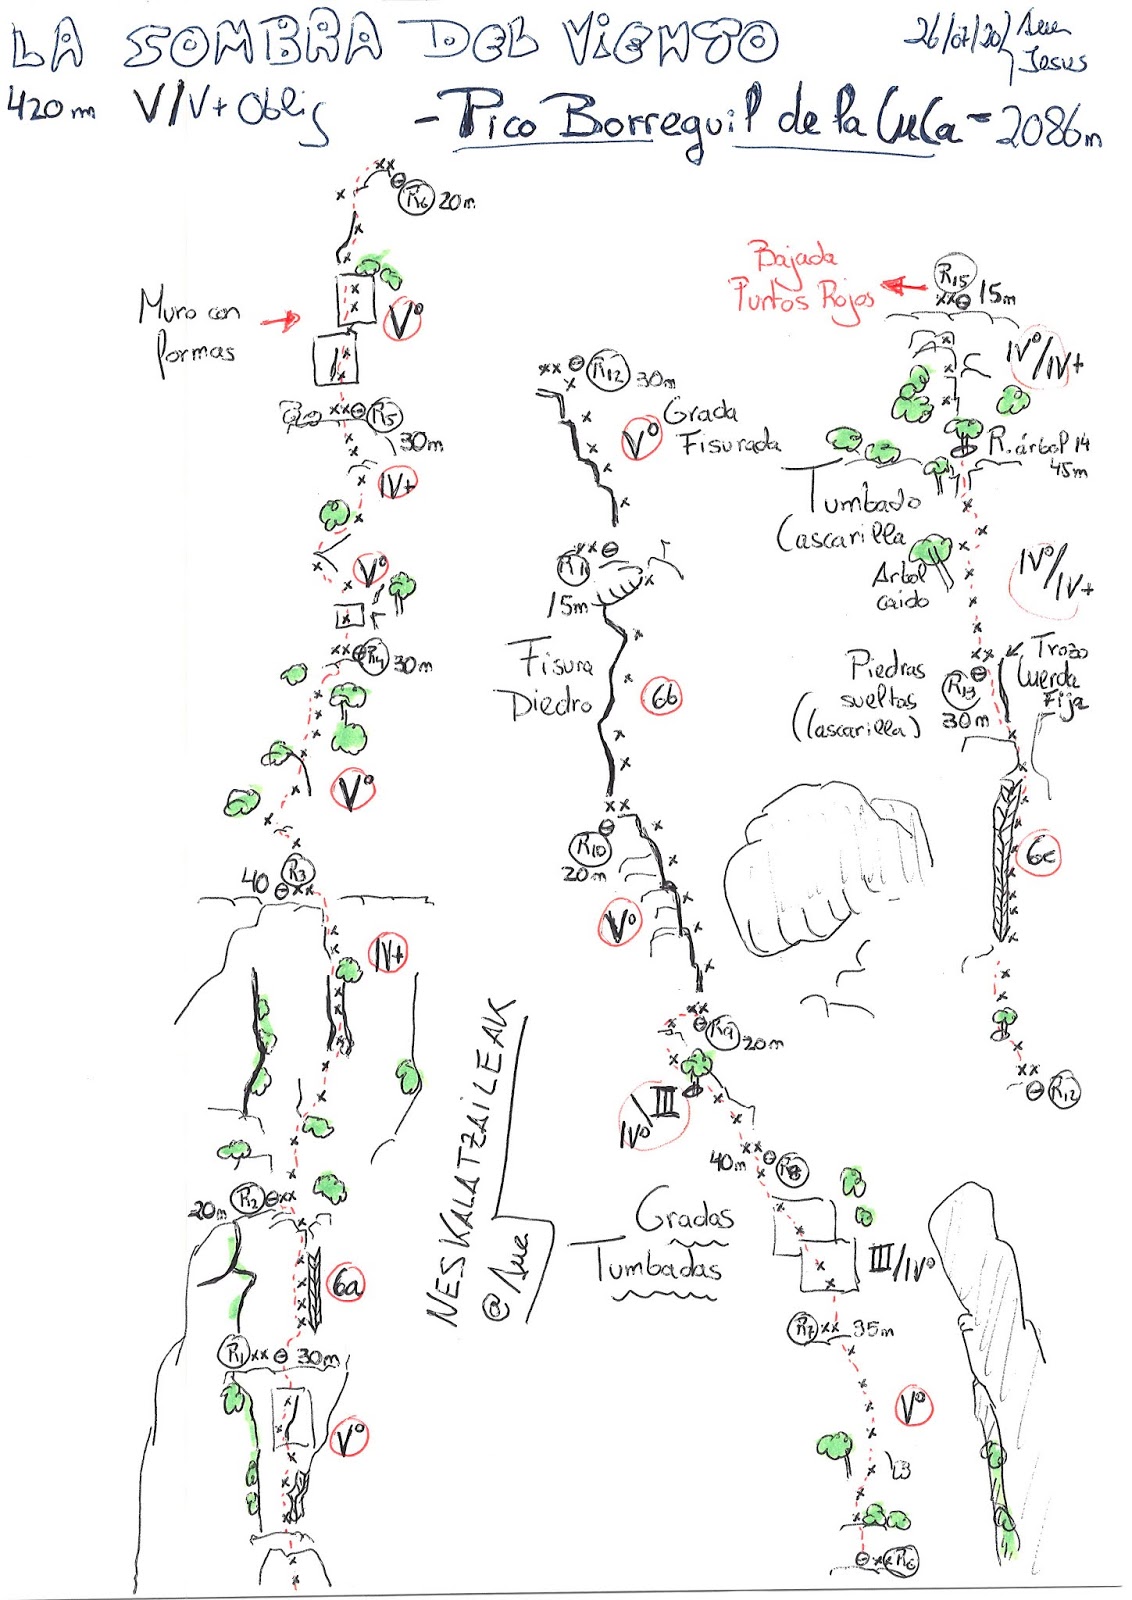 LA SOMBRA DEL VIENTO
26/07/20
Jesus
420m V/V+ Oblig
- Pico Borreguil de la CuCa - 2086m
R16 20m
Muro con
formas
Vº
R5
30m
IV+
Vº
R4 30m
Vº
40 R3
IV+
20m R2
6a
R1 30m
Vº
R12 30m
Grada
Fisurada
Vº
R11
15m
Fisura
Diedro
6b
R10
20m
Vº
R9 20m
IVº/III
40m R8
Gradas
Tumbadas
III/IVº
R7 35m
Vº
L3
R6
NESKALATZAILEAK
@Sue
Bajada
Puntos Rojos
R15
15m
IVº/IV+
R. árbol 14
45m
Tumbado
Cascarilla
Arbol
caido
IVº/IV+
Piedras
sueltas
(Cascarilla)
R13
30m
Trozo
Cuerda
Fija
6c
R12